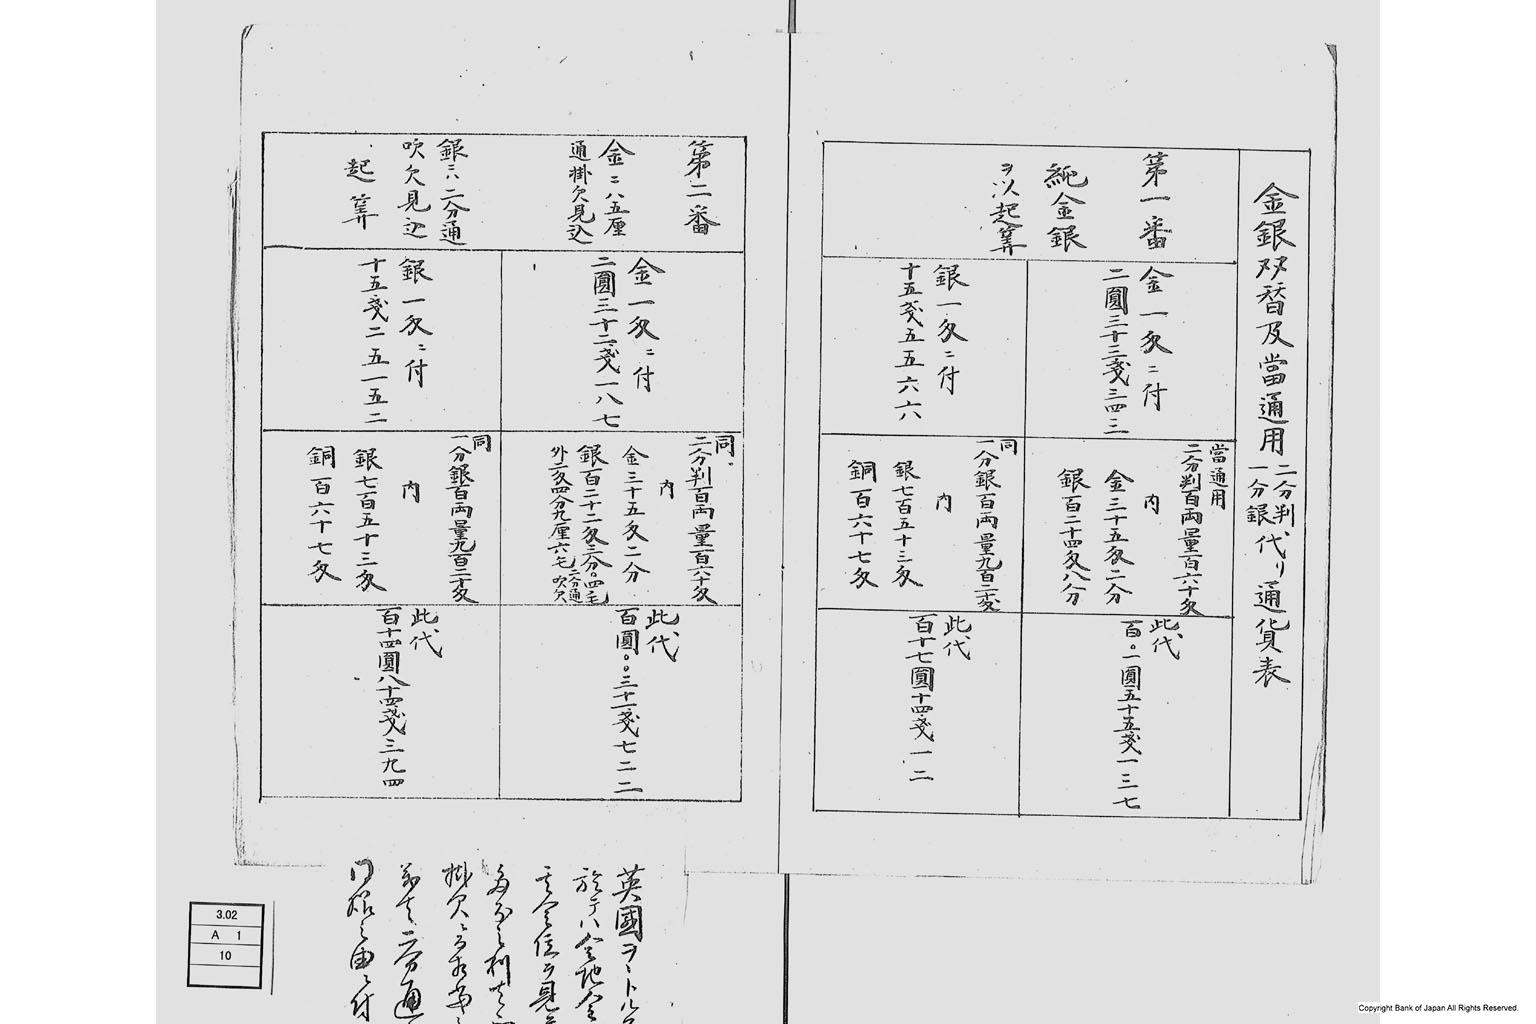 金銀双替及當通用二分判一分銀代り通貨表
第一番
純金銀
ヲ以起筭
金一匁ニ付
二圓三十三戔三四三
銀一匁ニ付
十五戔五五六六
當通用
二分判百両量百六十匁
内
金三十五匁二分
銀百二十四匁八分
同
一分銀百両量九百二十匁
内
銀七百五十三匁
銅百六十七匁
此代
百〇一圓五十五戔一三七
此代
百十七圓十四戔一二
第二番
金ニハ五厘
通掛欠見込
銀ニハ二分通
吹欠見込
起筭
金一匁ニ付
二圓三十二戔一八七
銀一匁ニ付
十五戔二五一五二
同
二分判百両量百六十匁
内
金三十五匁二分
銀百二十二匁三分〇四毛
外二匁四分九厘六毛二分通吹欠
同
一分銀百両量九百二十匁
内
銀七百五十三匁
銅百六十七匁
此代
百圓〇〇三十一戔七二二
此代
百十四圓八十四戔三九四
英國
於テハ金地金
掛欠
二分通
付
3.02
A 1
10
Copyright Bank of Japan All Rights Reserved.